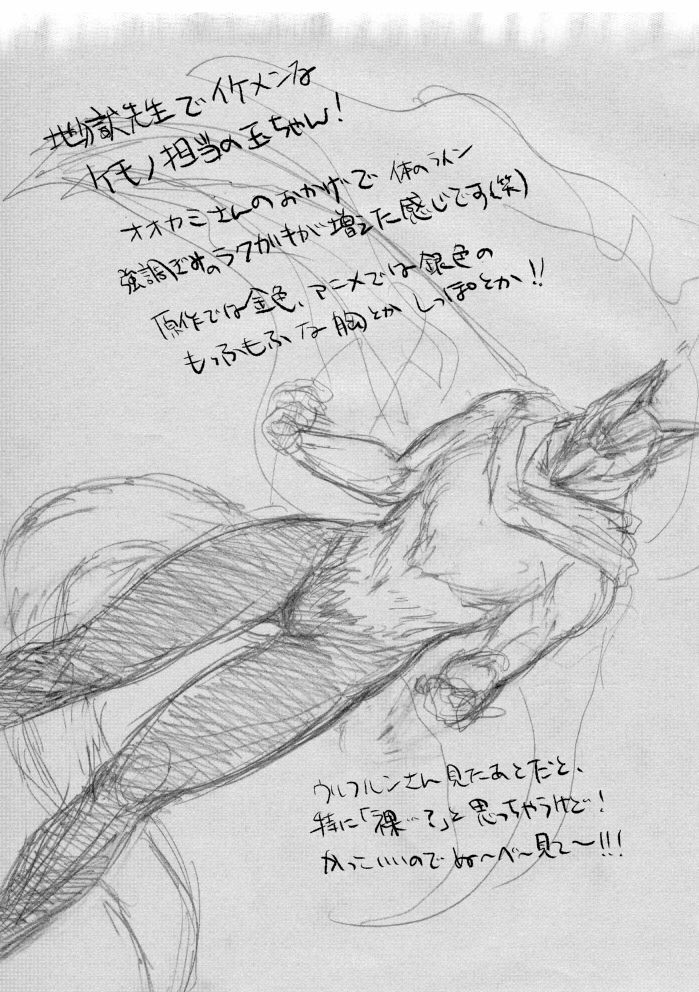 地獄先生でイケメンな
ケモノ担当の玉ちゃん!
オオカミさんのおかげで 体のライン
強調ぎみのラクガキが増えた感じです(笑)
原作では金色、アニメでは銀色の
もっふもふな胸とかしっぽとか!!
ウルフルンさん見たあとだと、
特に「裸…?」と思っちゃうけど!
かっこいいのでぬ〜べ〜見て〜!!!